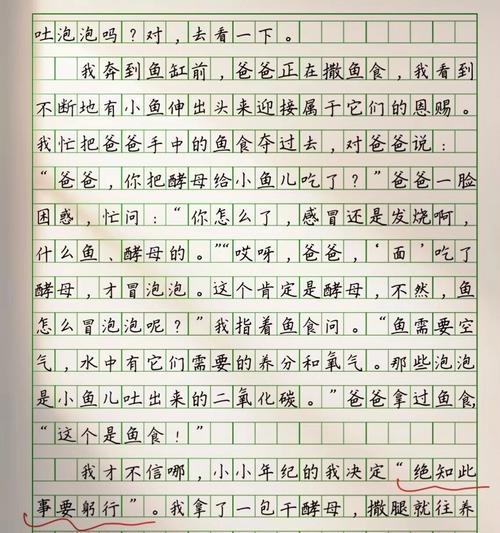 吐泡泡吗？对，去看一下。
我奔到鱼缸前，爸爸正在撒鱼食，我看到
不断地有小鱼伸出头来迎接属于它们的恩赐。
我忙把爸爸手中的鱼食夺过去，对爸爸说：
“爸爸，你把酵母给小鱼儿吃了？”爸爸一脸
困惑，忙问：“你怎么了，感冒还是发烧啊，
什么鱼、酵母的。”“哎呀，爸爸，‘面’吃了
酵母，才冒泡泡。这个肯定是酵母，不然，鱼
怎么冒泡泡呢？”我指着鱼食问。“鱼需要空
气，水中有它们需要的养分和氧气。那些泡泡
是小鱼儿吐出来的二氧化碳。”爸爸拿过鱼食，
“这个是鱼食！”
我才不信哪，小小年纪的我决定“绝知此
事要躬行”。我拿了一包干酵母，撒腿就往养